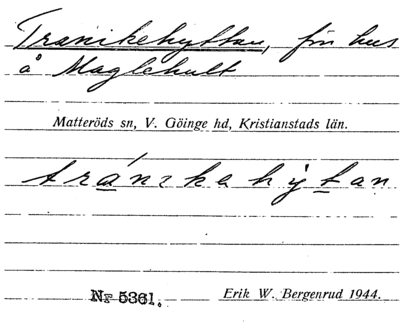 Tranikehyttan, fön hus
å Maglehult
Matteröds sn, V. Göinge hd, Kristianstads län.
tránikehy̍tan
Nr 5361. Erik W. Bergenrud 1944.